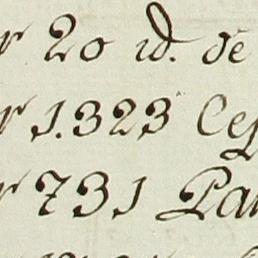 r 20 id. de
r 1.323 Cef
r 731 Pau